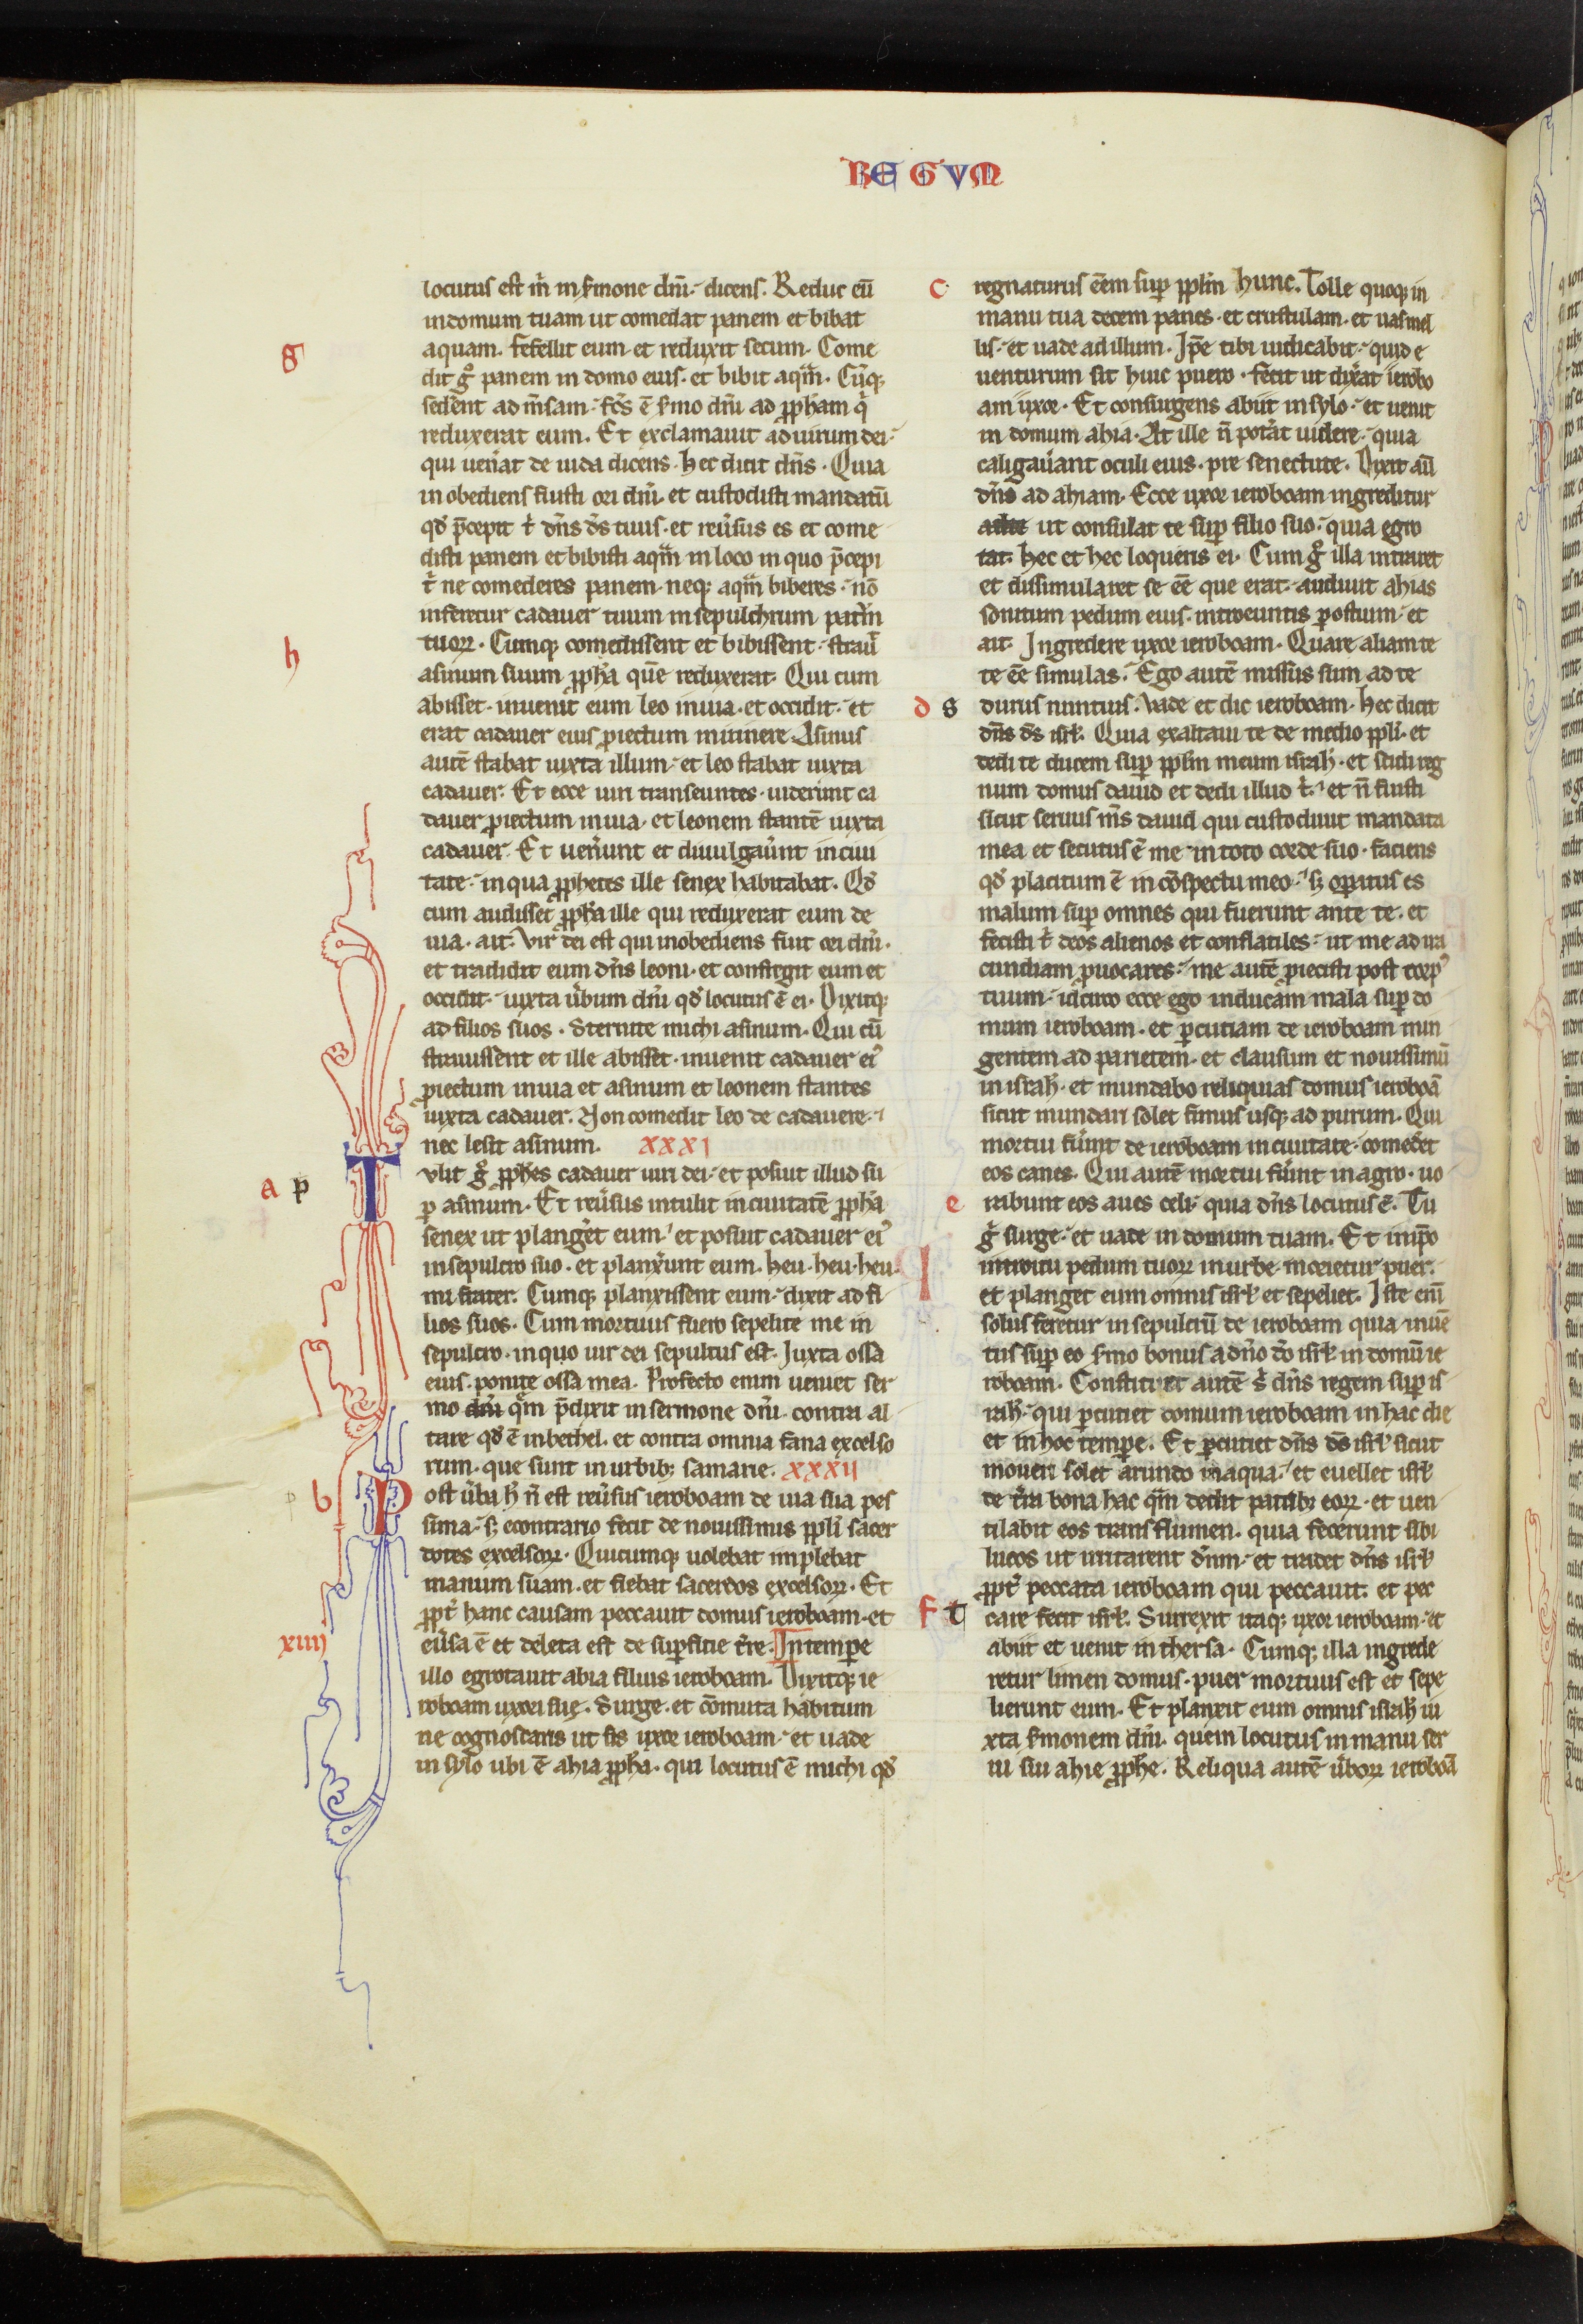 REGVM
locutus est m̄ in s̄mone dn̄i. dicens. Reduc eū
in domum tuam ut comedat panem et bibat
aquam. fefellit eum et reduxit secum. Come
g
dit gͦ panem in domo eius. et bibit aq̄m. Cūq;
sedent ad m̄sam. fc̄s ē s̄mo dn̄i ad ꝓph̄am q̄
reduxerat eum. Et exclamauit ad uirum dei.
qui uen̄at de iuda dicens. hec dicit dn̄s. Quia
in obediens fuisti ori dn̄i. et custodisti mandatū
qd̄ p̄cepit t̄ dn̄s d̄s tuus. et reūsus es et come
disti panem et bibisti aq̄m in loco in quo p̄cepi
t̄ ne comederes panem. neq; aq̄m biberes. nō
inferetur cadauer tuum in sepulchrum patr̄m
h
tuoꝝ. Cumq; comedissent et bibissent. strauit̄
asinum suum ꝓph̄a quē reduxerat. Qui cum
abisset. inuenit eum leo in uia. et occidit. et
erat cadauer eius ꝓiectum in itinere Asinus
autē stabat iuxta illum. et leo stabat iuxta
cadauer. Et ecce uiri transeuntes. uiderunt ca
dauer ꝓiectum in uia. et leonem stantē iuxta
cadauer. Et uen̄unt et diuulgaūnt in ciui
tate. in qua ꝓphetes ille senex habitabat. Qd̄
cum audisset ꝓph̄a ille qui reduxerat eum de
uia. ait. Vir dei est qui inobediens fuit ori dn̄i.
et tradidit eum dn̄s leoni. et confregit eum et
occidit. iuxta ūbum dn̄i qd̄ locutus ē ei. Dixitq;
ad filios suos. Sternite michi asinum. Qui cū
strauissent et ille abisset. inuenit cadauer ei᷒
ꝓiectum in uia et asinum et leonem stantes
iuxta cadauer. Non comedit leo de cadauere.
nec lesit asinum. xxxi
T
a p
vlit gͦ ꝓph̄es cadauer uiri dei. et posuit illud su
ꝑ asinum. Et reūsus intulit in ciuitatē ꝓph̄a
senex ut planget̄ eum. et posuit cadauer ei᷒
in sepulcro suo. et planx̄unt eum. heu. heu. heu.
mi frater. Cumq; planxissent eum. dixit ad fi
lios suos. Cum mortuus fuero sepelite me in
sepulcro. in quo uir dei sepultus est. Iuxta ossa
eius. ponite ossa mea. Profecto enim ueniet ser
mo dn̄i q̄m p̄dixit in sermone dn̄i. contra al
tare qd̄ ē in bethel. et contra omnia fana excelso
rum. que sunt in urbib; samarie. xxxii
b
P
ost ūba h̄ n̄ est reūsus ieroboam de uia sua pes
sima. s; econtrario fecit de nouissimis ꝓpl̄i sacer
dotes excelsoꝝ. Quicumq; uolebat implebat
manum suam. et fiebat sacerdos excelsoꝝ. Et
ꝓpt̄ hanc causam peccauit domus ieroboam. et
xiiii
eūsa ē et deleta est de suꝑficie t̄re. In tempe
illo egrotauit abia filius ieroboam. Dixitq; ie
roboam uxori suę. Surge. et cōmuta habitum
ne cognoscaris ut sis uxor ieroboam. et uade
in sylo ubi ē ahia ꝓph̄a. qui locutus ē michi qd̄
c
regnaturus eēm suꝑ ꝓpl̄m hunc. Tolle quoq; in
manu tua decem panes. et crustulam. et uas mel
lis. et uade ad illum. Ip̄e tibi iudicabit. quid e
uenturum sit huic puero. fecit ut dix̄at ierobo
am uxor. Et consurgens abiit in sylo. et uenit
in domum ahia. At ille n̄ potāt uidere. quia
caligaūant oculi eius. pre senectute. Dixit aū
dn̄s ad ahiam. Ecce uxor ieroboam ingreditur
ut consulat te suꝑ filio suo. quia egro
tat. hec et hec loqueris ei. Cum gͦ illa intraret
et dissimularet se eē que erat. audiuit ahias
sonitum pedum eius. introeuntis ꝑ ostium. et
ait. Ingredere uxor ieroboam. Quare aliam te
te eē simulas. Ego autē missus sum ad te
d s
durus nuntius. Vade et dic ieroboam. hec dicit
dn̄s d̄s isrl̄. Quia exaltaui te de medio ꝓpl̄i. et
dedi te ducem suꝑ ꝓpl̄m meum israh̄. et scidi reg
num domus dauid et dedi illud t̄. et n̄ fuisti
sicut seruus m̄s dauid qui custodiuit mandata
mea et secutus ē me in toto corde suo. faciens
qd̄ placitum ē in cōspectu meo. s; oꝑatus es
malum suꝑ omnes qui fuerunt ante te. et
fecisti t̄ deos alienos et conflatiles. ut me ad ira
cundiam ꝓuocares. me autē ꝓiecisti post corp᷒
tuum. idcirco ecce ego inducam mala suꝑ do
mum ieroboam. et ꝑcutiam de ieroboam min
gentem ad parietem. et clausum et nouissimū
in israh̄. et mundabo reliquias domus ieroboā
sicut mundari solet fimus usq; ad purum. Qui
mortui fūint de ieroboam in ciuitate. comedēt
eos canes. Qui autē mortui fūint in agro. uo
e
rabunt eos aues celi. quia dn̄s locutus ē. Tu
gͦ surge. et uade in domum tuam. Et in ip̄o
introitu pedum tuoꝝ in urbē. morietur puer.
et planget eum omnis isrl̄ et sepeliet. Iste eni͞
solus feretur in sepulcrū de ieroboam quia inuē
tus suꝑ eo s̄mo bonus a dn̄o d̄o isrl̄ in domū ie
roboam. Constituet autē s̄ dn̄s regem suꝑ is
rah̄. qui ꝑcutiet domum ieroboam in hac die
et in hoc tempe. Et ꝑcutiet dn̄s d̄s isrl̄ sicut
moueri solet arundo in aqua. et euellet isrl̄
de t̄ra bona hac q̄m dedit patrib; eoꝝ. et uen
tilabit eos trans flumen. quia fecerunt sibi
lucos ut irritarent dn̄m. et tradet dn̄s isrl̄
ꝓpt̄ peccata ieroboam qui peccauit. et pec
f t
care fecit isrl̄. Surrexit itaq; uxor ieroboam. et
abiit et uenit in thersa. Cumq; illa ingrede
retur limen domus. puer mortuus est et sepe
lierunt eum. Et planxit eum omnis israh̄ iu
xta s̄monem dn̄i. quem locutus in manu ser
ui sui ahie ꝓph̄e. Reliqua autē ūboꝝ ieroboā